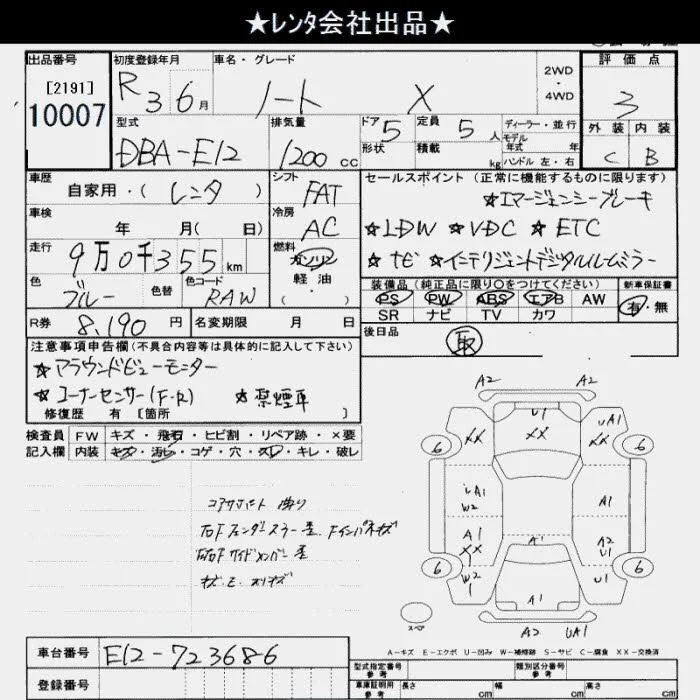 ★レンタ会社出品★
出品番号 初度登録年月 車名・グレード 評価点
[2191] R 3 6月 ノート X 2WD・4WD 3
10007
型式 排気量 ドア 5 定員 5人 ディーラー・並行 外装 内装
DBA-E12 1200cc 形状 積載 kg モデル年式 年 C B
ハンドル 左・右
車歴 シフト セールスポイント (正常に機能するものに限ります)
自家用・( レンタ ) FAT ★エマージェンシーブレーキ
車検 冷房 ★LDW ★VDC ★ETC
年 月( 日) AC
走行 燃料 ★ナビ ★インテリジェントデジタルルームミラー
9万0千355km ガソリン
色 色替 色コード 軽油 装備品 (純正品に限り○をつけてください) 新車保証書
ブルー RAW ( ) PS PW ABS エアB AW 有・無
SR ナビ TV カワ
R券 8,190円 名変期限 月 日 後日品
取
注意事項申告欄(不具合内容等は具体的に記入して下さい)
★アラウンドビューモニター
★コーナーセンサー(F・R) ★禁煙車
修復歴 有 [箇所 ]
検査員 FW キズ・飛石・ヒビ割・リペア跡・×要
記入欄 内装 キズ・汚れ・コゲ・穴・スレ・キレ・破レ
コアサポート 曲り
A2 A2
U1
XX XX UA1 XX
6 6
UA1 W2 A1
A1 XX A1 A2 U1
6 W2 1 U1 6
A1
スペア A2 UA1
A-キズ E-エクボ U-凹み W-補修跡 S-サビ C-腐食 XX-交換済
車台番号 E12-723686
登録番号
型式指定番号 参考 類別区分番号 参考
車庫証明用 参考 長さ cm 幅 cm 高さ cm